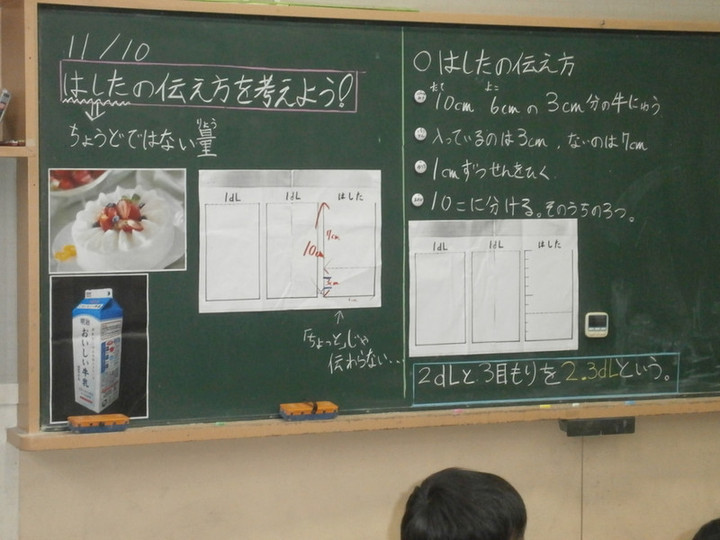 11/10
はしたの伝え方を考えよう!
ちょうどではない量
りょう
明治
おいしい牛乳
1dL 1dL はした
10cm 7cm
3cm
「ちょっと」じゃ
伝わらない…
○はしたの伝え方
たて よこ
10cm 6cmの3cm分の牛にゅう
入っているのは3cm、ないのは7cm
1cmずつせんをひく
10こに分ける。そのうちの3つ。
1dL 1dL はした
2dLと3目もりを2.3dLという。